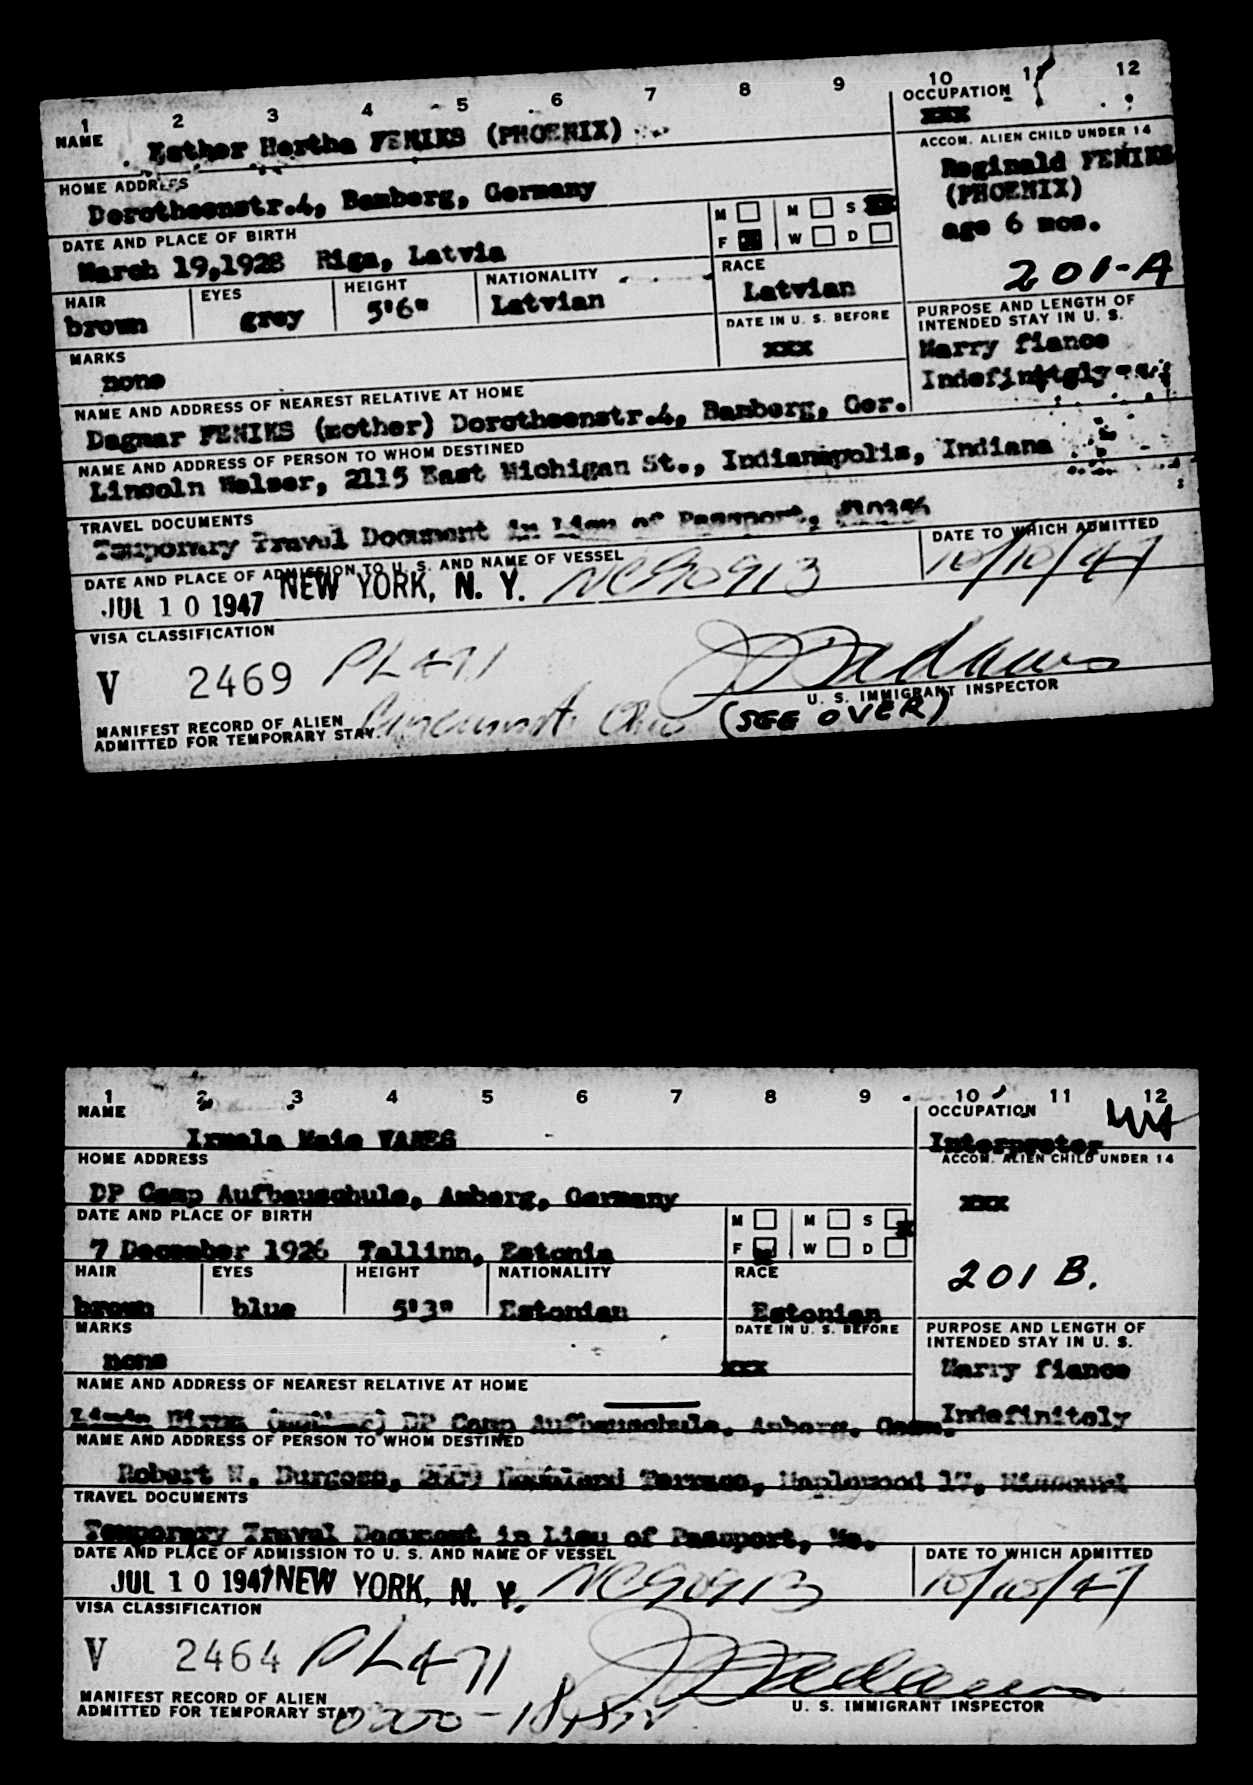 1 2 3 4 5 6 7 8 9 10 11 12
NAME
Esther Hertha FENIKS (PHOENIX)
OCCUPATION
xxx
ACCOM. ALIEN CHILD UNDER 14
Reginald FENIKS
(PHOENIX)
age 6 mos.
201-A
HOME ADDRESS
Dorotheenstr.4, Bamberg, Germany
DATE AND PLACE OF BIRTH
March 19,1928 Riga, Latvia
M M S
F W D
HAIR
brown
EYES
grey
HEIGHT
5'6"
NATIONALITY
Latvian
RACE
Latvian
MARKS
none
DATE IN U. S. BEFORE
xxx
PURPOSE AND LENGTH OF
INTENDED STAY IN U. S.
Marry fiance
Indefinitely
NAME AND ADDRESS OF NEAREST RELATIVE AT HOME
Dagmar FENIKS (mother) Dorotheenstr.4, Bamberg, Ger.
NAME AND ADDRESS OF PERSON TO WHOM DESTINED
Lincoln Walser, 2115 East Michigan St., Indianapolis, Indiana
TRAVEL DOCUMENTS
Temporary Travel Document in Lieu of Passport,
DATE AND PLACE OF ADMISSION TO U. S. AND NAME OF VESSEL
JUL 10 1947 NEW YORK, N. Y. NC90913
DATE TO WHICH ADMITTED
10/10/47
VISA CLASSIFICATION
V 2469 PL 471
U. S. IMMIGRANT INSPECTOR
MANIFEST RECORD OF ALIEN
ADMITTED FOR TEMPORARY STAY
Cincinnati Ohio (SEE OVER)
1 2 3 4 5 6 7 8 9 10 11 12
NAME
VARES
OCCUPATION
Interpreter
ACCOM. ALIEN CHILD UNDER 14
xxx
201 B.
HOME ADDRESS
DP Camp Aufbauschule, Amberg, Germany
DATE AND PLACE OF BIRTH
7 December 1926 Tallinn, Estonia
M M S
F W D
HAIR
brown
EYES
blue
HEIGHT
5'3"
NATIONALITY
Estonian
RACE
Estonian
MARKS
none
DATE IN U. S. BEFORE
xxx
PURPOSE AND LENGTH OF
INTENDED STAY IN U. S.
Marry fiance
Indefinitely
NAME AND ADDRESS OF NEAREST RELATIVE AT HOME
(mother) DP Camp Aufbauschule, Amberg, Germ.
NAME AND ADDRESS OF PERSON TO WHOM DESTINED
Robert W. Burgess, Terrace, Maplewood 17, Missouri
TRAVEL DOCUMENTS
Temporary Travel Document in Lieu of Passport, No.
DATE AND PLACE OF ADMISSION TO U. S. AND NAME OF VESSEL
JUL 10 1947 NEW YORK, N. Y. NC90913
DATE TO WHICH ADMITTED
10/10/47
VISA CLASSIFICATION
V 2464 PL 471
U. S. IMMIGRANT INSPECTOR
MANIFEST RECORD OF ALIEN
ADMITTED FOR TEMPORARY STAY